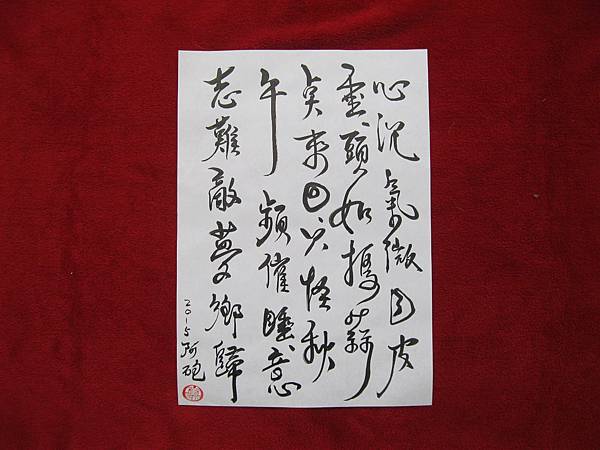 心沉氣微目皮
重頭如搗蒜
奌來回只怪秋
午頻催睡意
志難敵夢鄉歸
2015阿砲